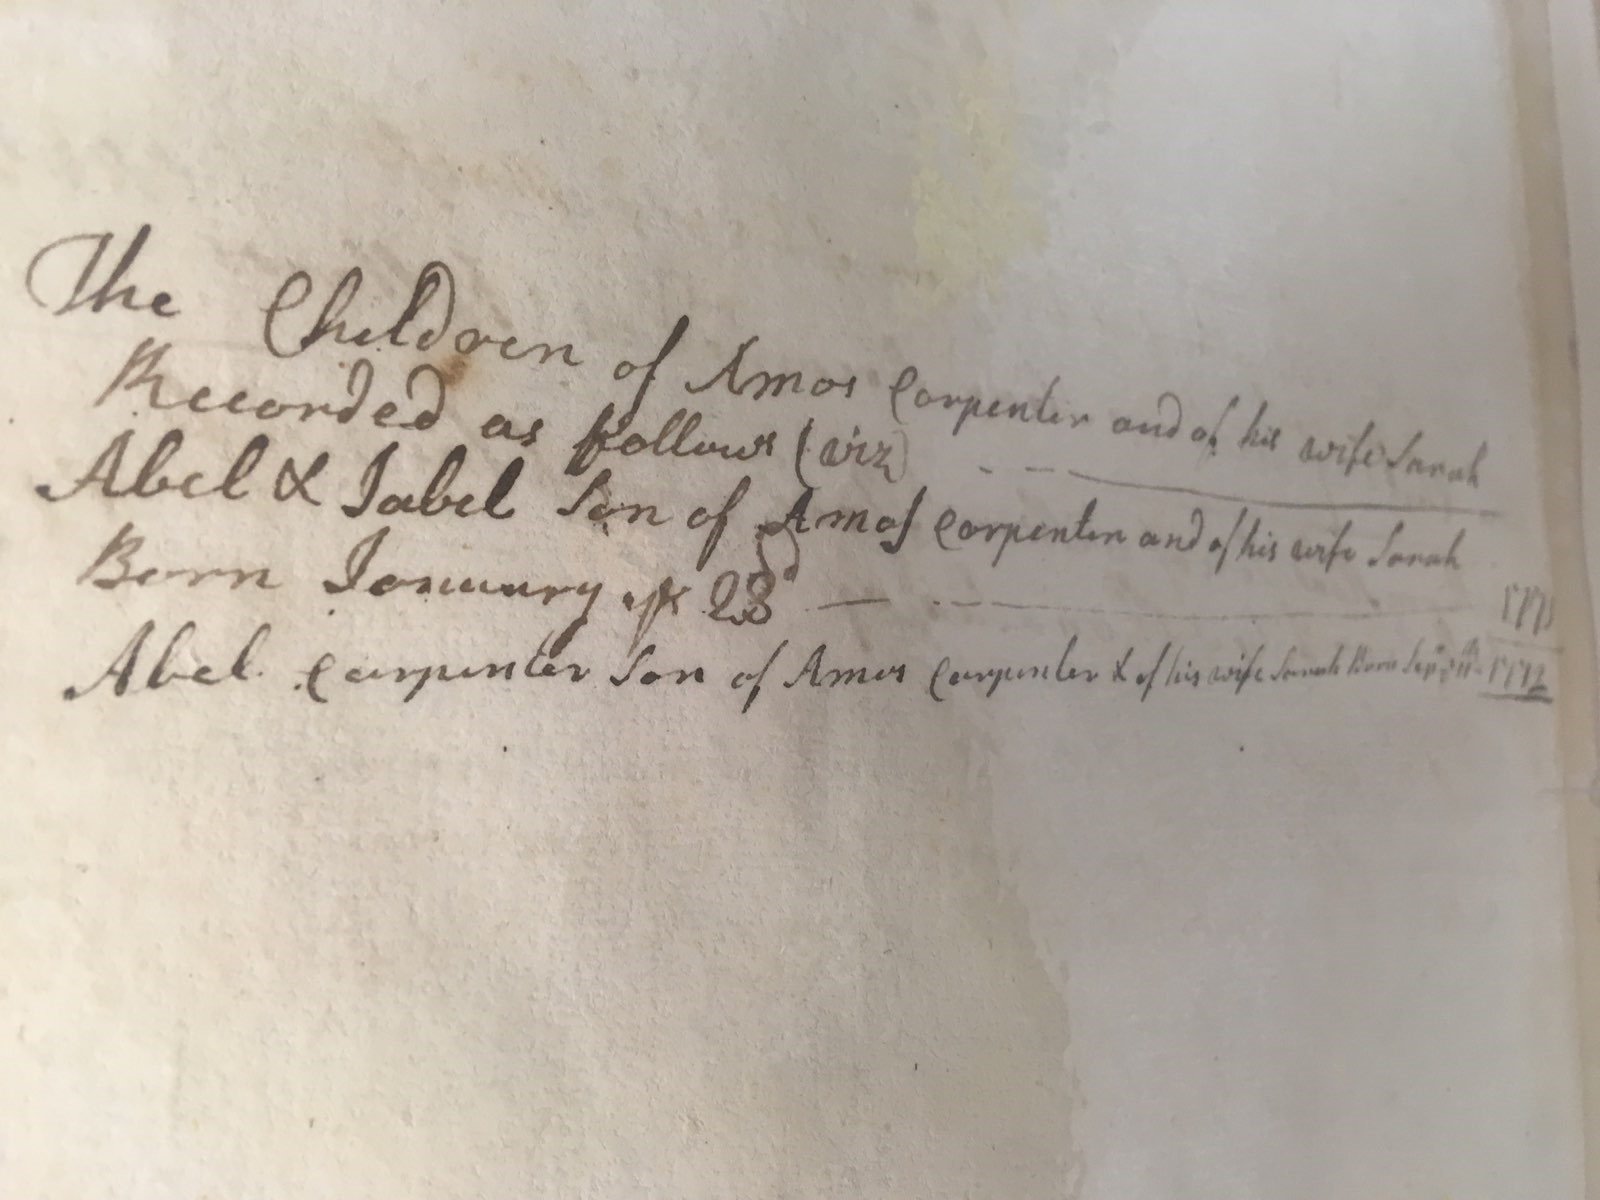 The Children of Amos Carpenter and of his wife Sarah
Recorded as follows (viz)
Abel & Jabel Son of Amos Carpenter and of his wife Sarah
Born January ye 28d 1771
Abel Carpenter Son of Amos Carpenter & of his wife Sarah Born 1772